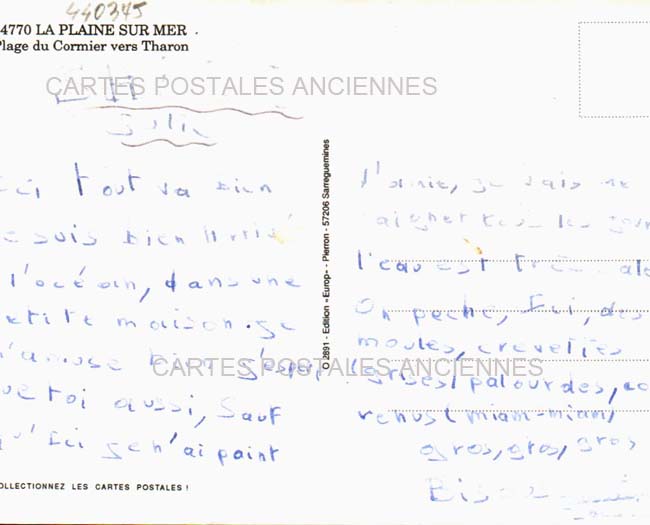 440345
4770 LA PLAINE SUR MER
Plage du Cormier vers Tharon
CARTES POSTALES ANCIENNES
ci tout va bien
e suis bien
l'océan, dans une
etite maison. je
'amuse bien j'espèr
ue toi aussi, Sauf
qu'Ici je n'ai point
COLLECTIONNEZ LES CARTES POSTALES !
O 2891 - Edition «Europ» - Pierron - 57206 Sarreguemines
d'amie, je vais me
aigner les
l'eau est très
On peche, Ici, des
moules, crevettes
(grises) palourdes, co
venus (miam-miam)
gros, gros, gros
CARTES POSTALES ANCIENNES